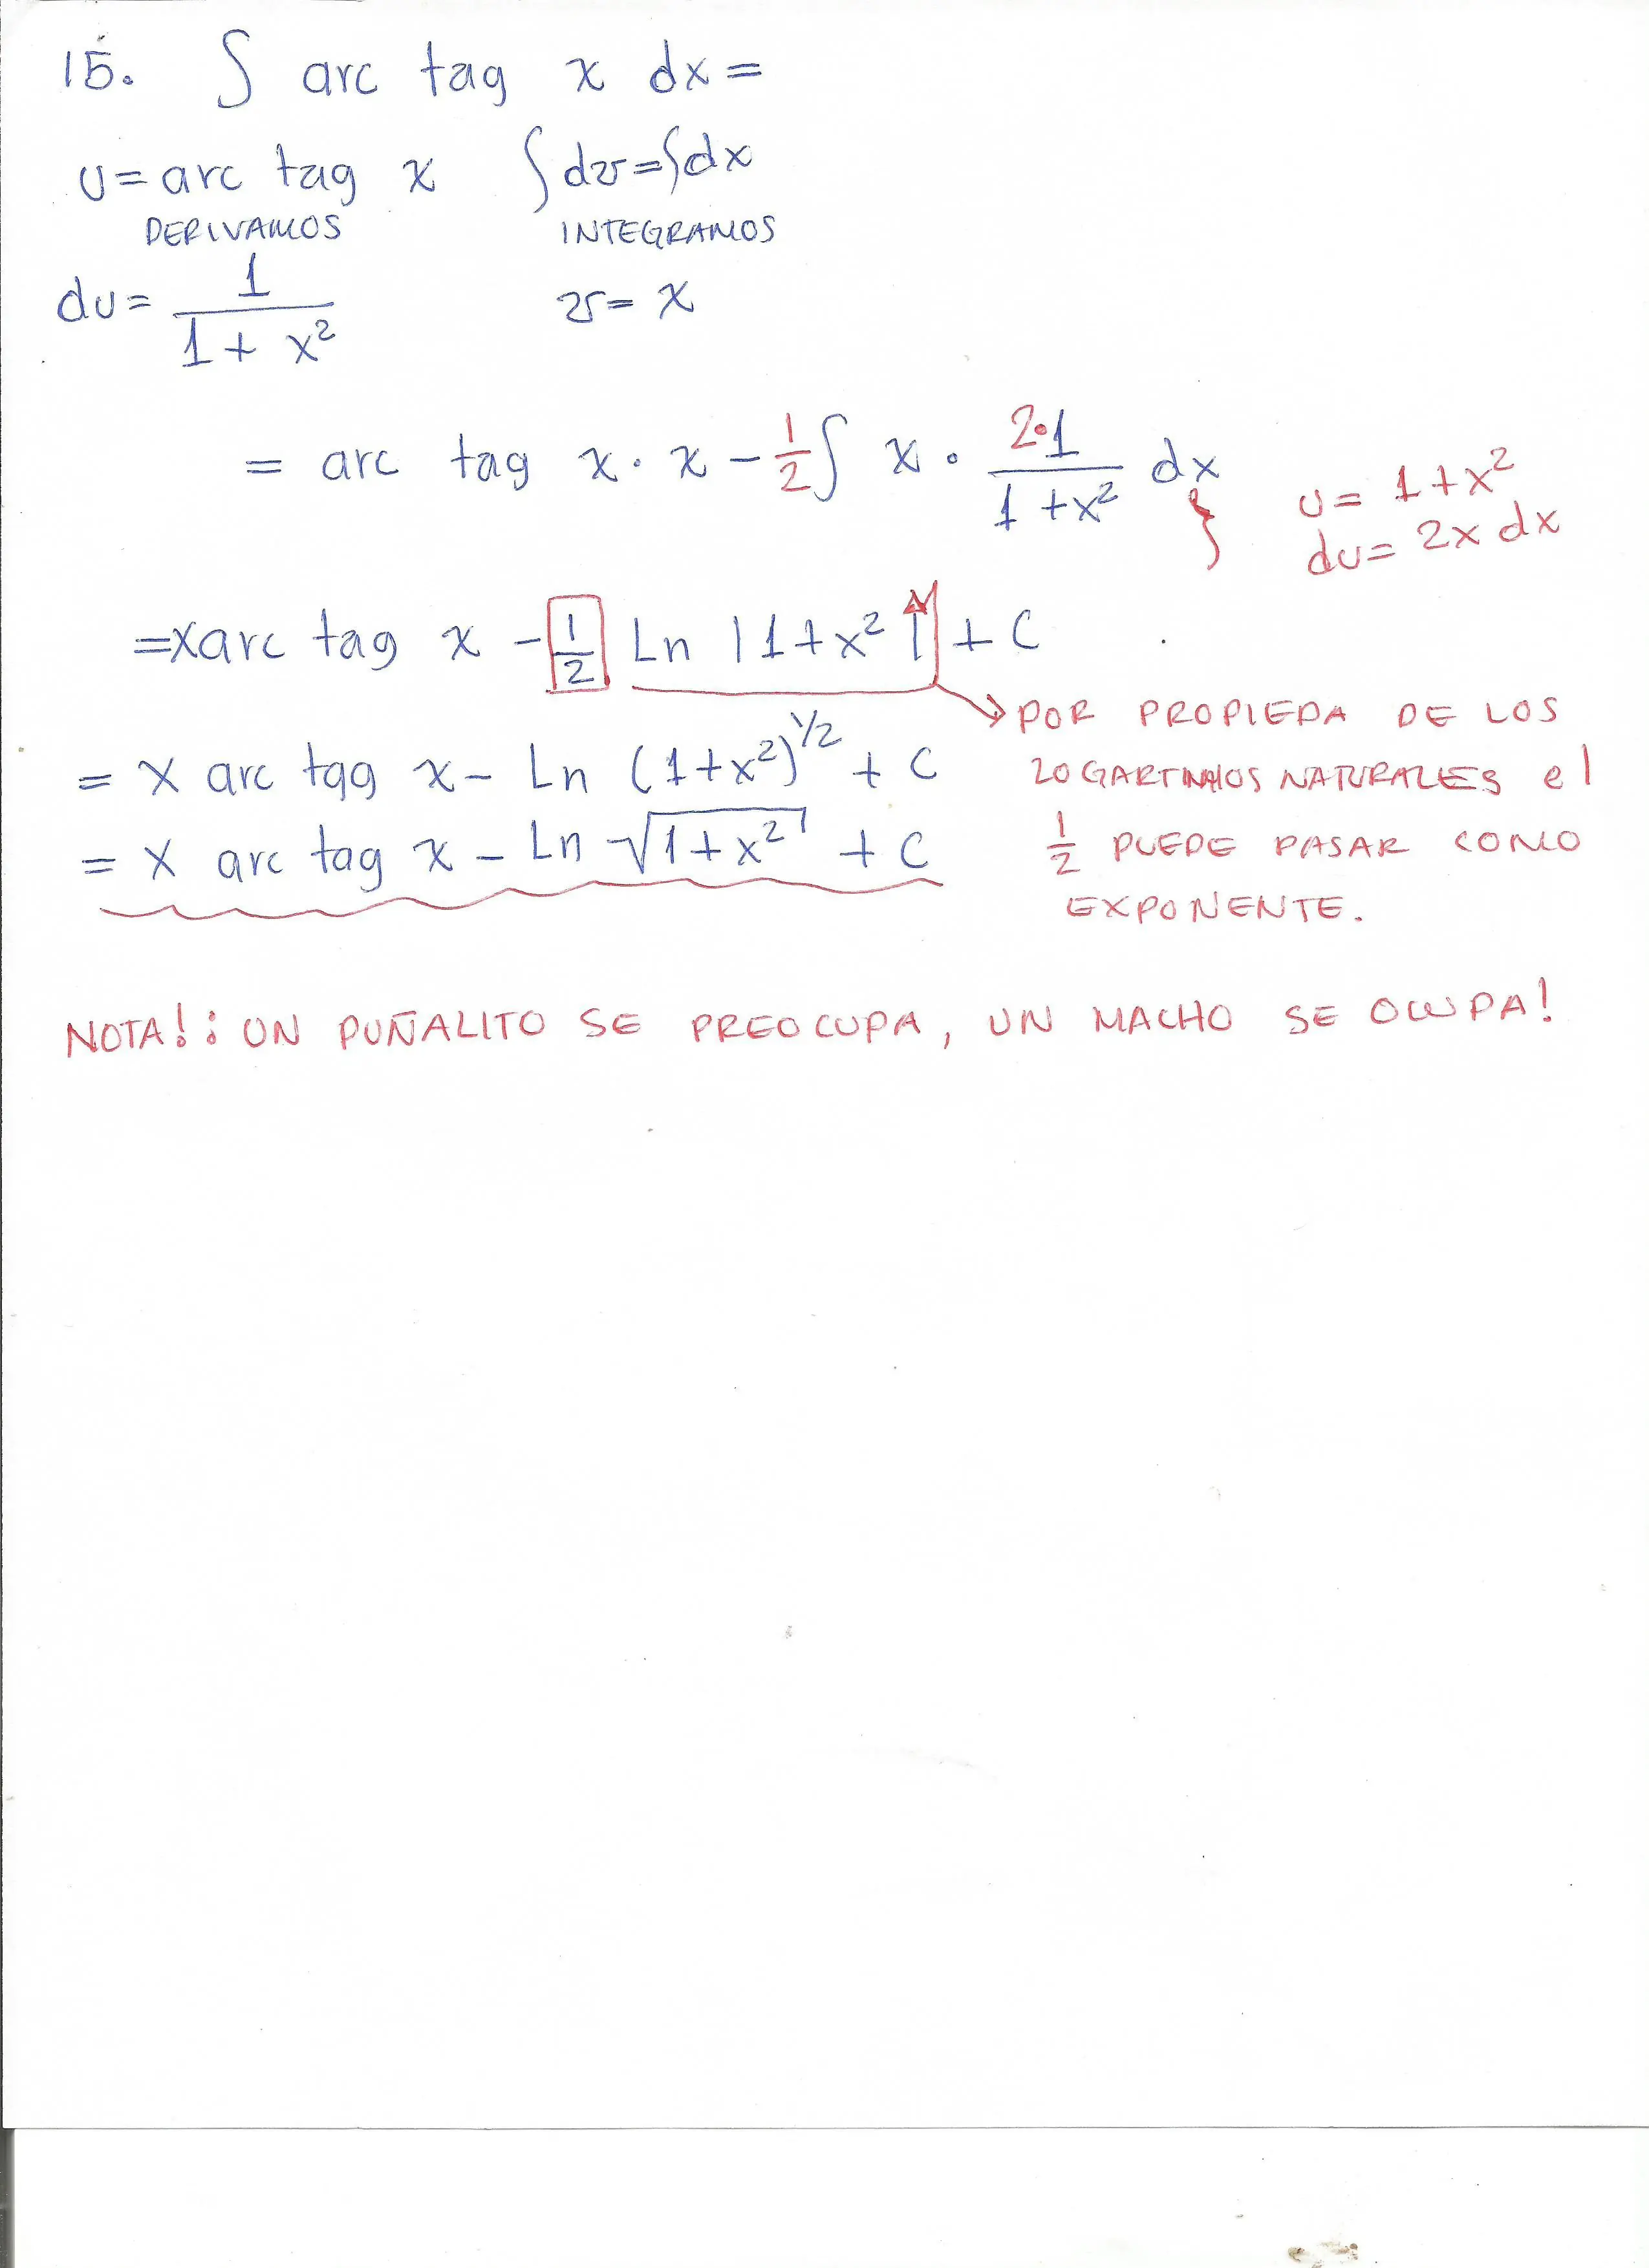 15. ∫ arc tag x dx =
u = arc tag x ∫dv = ∫dx
DERIVAMOS INTEGRAMOS
du = 1/(1 + x²) v = x
= arc tag x · x - 1/2 ∫ x · (2·1)/(1 + x²) dx } u = 1 + x²
du = 2x dx
= x arc tag x - 1/2 Ln |1 + x²| + C
POR PROPIEDA DE LOS
LOGARTIMHOS NATURALES el
1/2 PUEDE PASAR COMO
EXPONENTE.
= x arc tag x - Ln (1+x²)^1/2 + C
= x arc tag x - Ln √(1+x²) + C
NOTA!: UN PUÑALITO SE PREOCUPA, UN MACHO SE OCUPA!